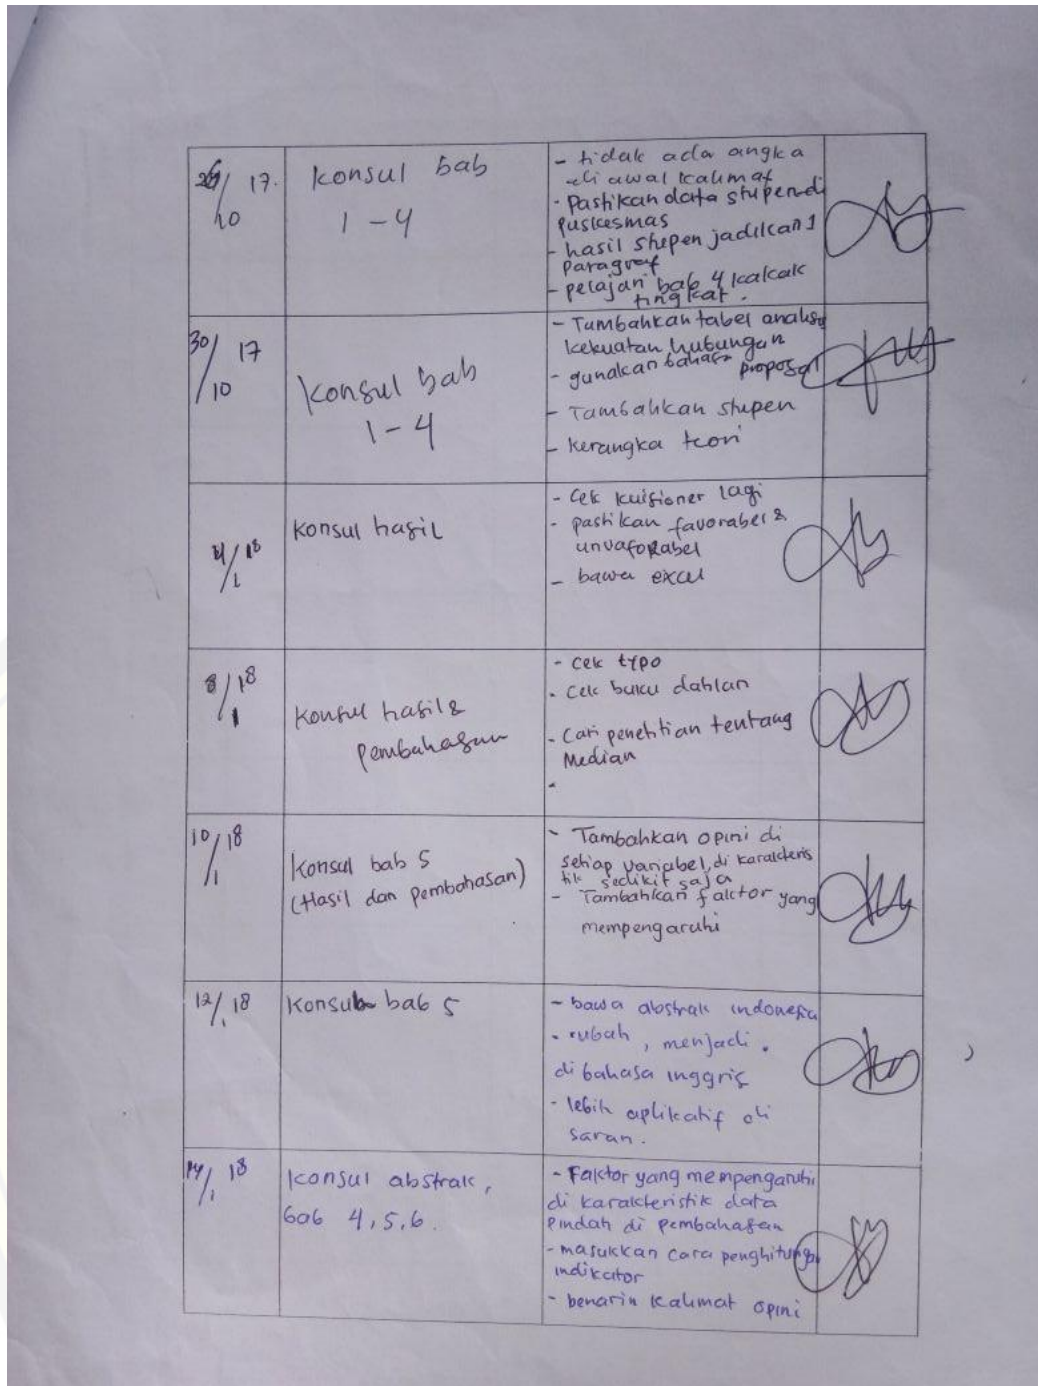 26/10 17.
konsul bab
1 - 4
- tidak ada angka
di awal kalimat
- Pastikan data stupen di
puskesmas
- hasil stupen jadikan 1
paragraf
- pelajari bab 4 kakak
tingkat.
30/10 17
konsul bab
1 - 4
- Tambahkan tabel analisa
kekuatan hubungan
- gunakan bahasa proposal
- Tambahkan stupen
- kerangka teori
/1 18
konsul hasil
- Cek kuisioner lagi
- pastikan favorabel &
unvaforabel
- bawa excel
8/1 18
konsul hasil &
pembahasan
- Cek typo
- Cek buku dahlan
- Cari penelitian tentang
Median
-
10/1 18
Konsul bab 5
(Hasil dan pembahasan)
- Tambahkan opini di
setiap variabel, di karakteris
tik sedikit saja
- Tambahkan faktor yang
mempengaruhi
12/1 18
Konsul bab 5
- bawa abstrak indonesia
- rubah , menjadi .
di bahasa inggris
- lebih aplikatif di
saran.
14/1 18
konsul abstrak,
bab 4, 5, 6.
- Faktor yang mempengaruhi
di karakteristik data
pindah di pembahasan
- masukkan cara penghitungan
indikator
- benarin kalimat opini